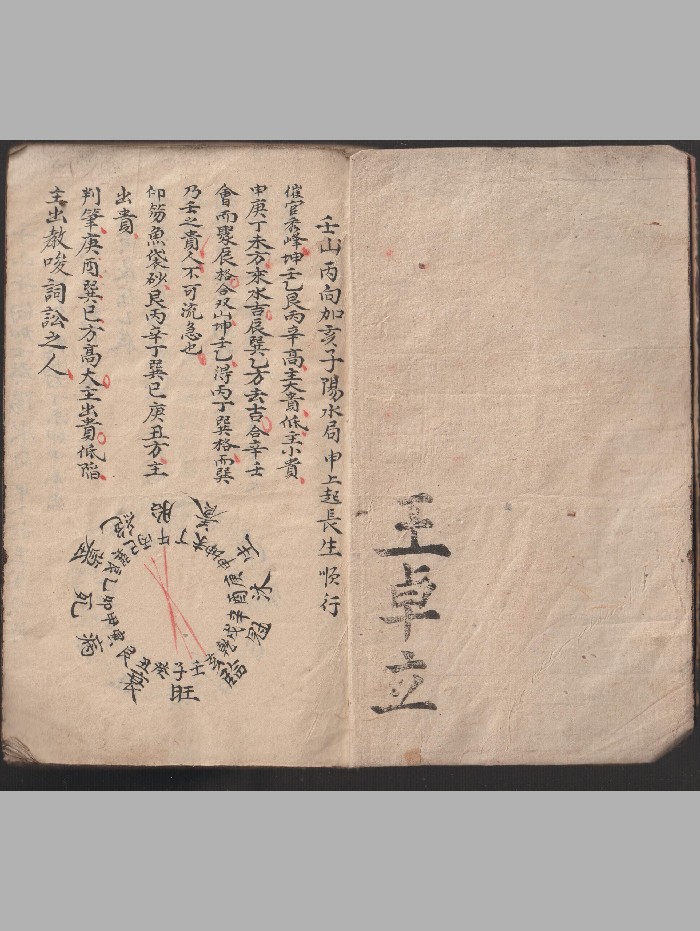 王卓立
壬山丙向加亥子陽水局申上起長生順行
催官系峰坤壬乙艮丙辛高主大貴低主小貴
申庚丁未方來水吉辰巽乙方去吉合辛壬
會而聚辰格合双山坤壬乙得丙丁巽格而巽
乃壬之貴人不可流急也
仰笏魚袋砂艮丙辛丁巽巳庚丑方主
出貴
判筆庚酉巽巳方高大主出貴低陷
主出教唆詞訟之人
胎養生沐冠臨旺衰病死墓絶
午丁未坤申庚酉辛戌乾亥壬子癸丑艮寅甲卯乙辰巽巳丙